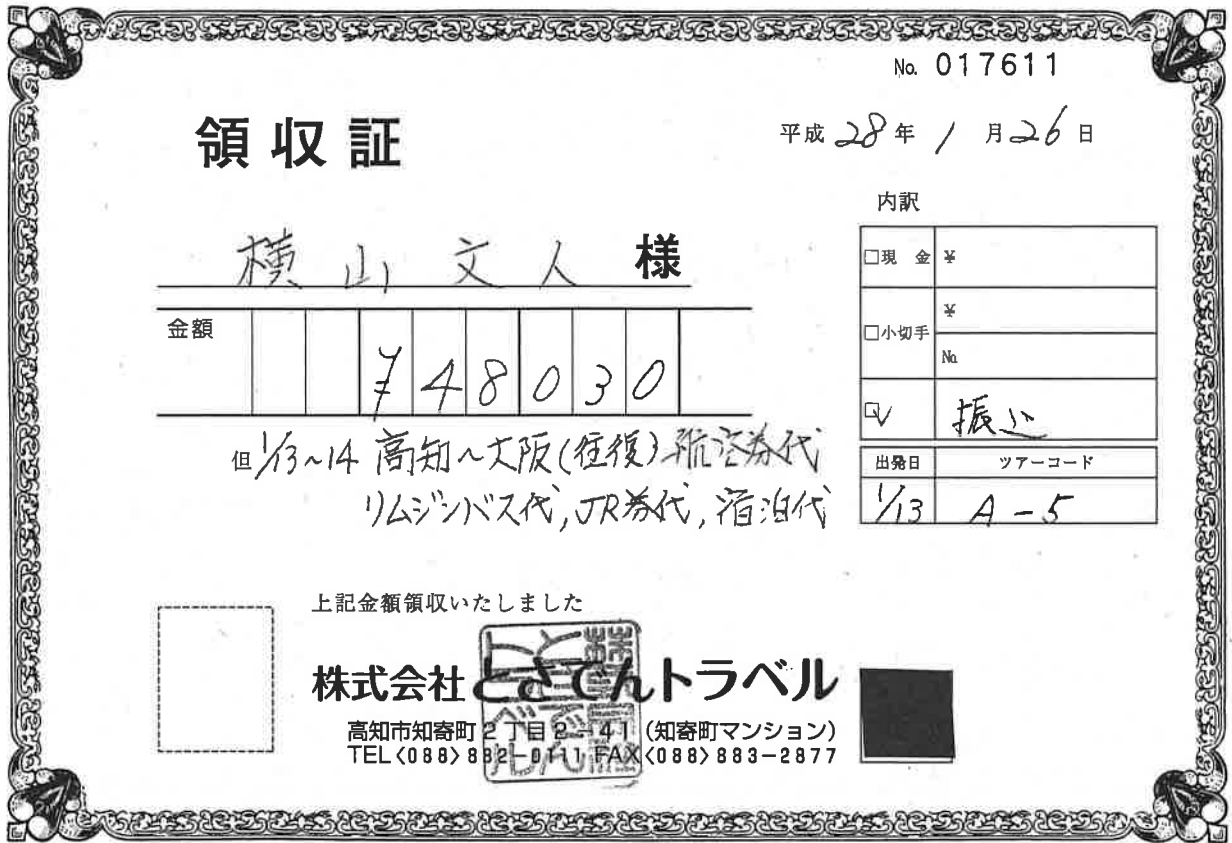 No. 017611
領収証
平成 28 年 1 月 26 日
横山文人 様
金額 ¥48030
但 1/13~14 高知~大阪(往復)航空券代
リムジンバス代,JR券代,宿泊代
内訳
□現金 ¥
□小切手 ¥
No.
☑ 振込
出発日 ツアーコード
1/13 A-5
上記金額領収いたしました
株式会社とさでんトラベル
高知市知寄町2丁目2-41(知寄町マンション)
TEL〈088〉882-0111 FAX〈088〉883-2877